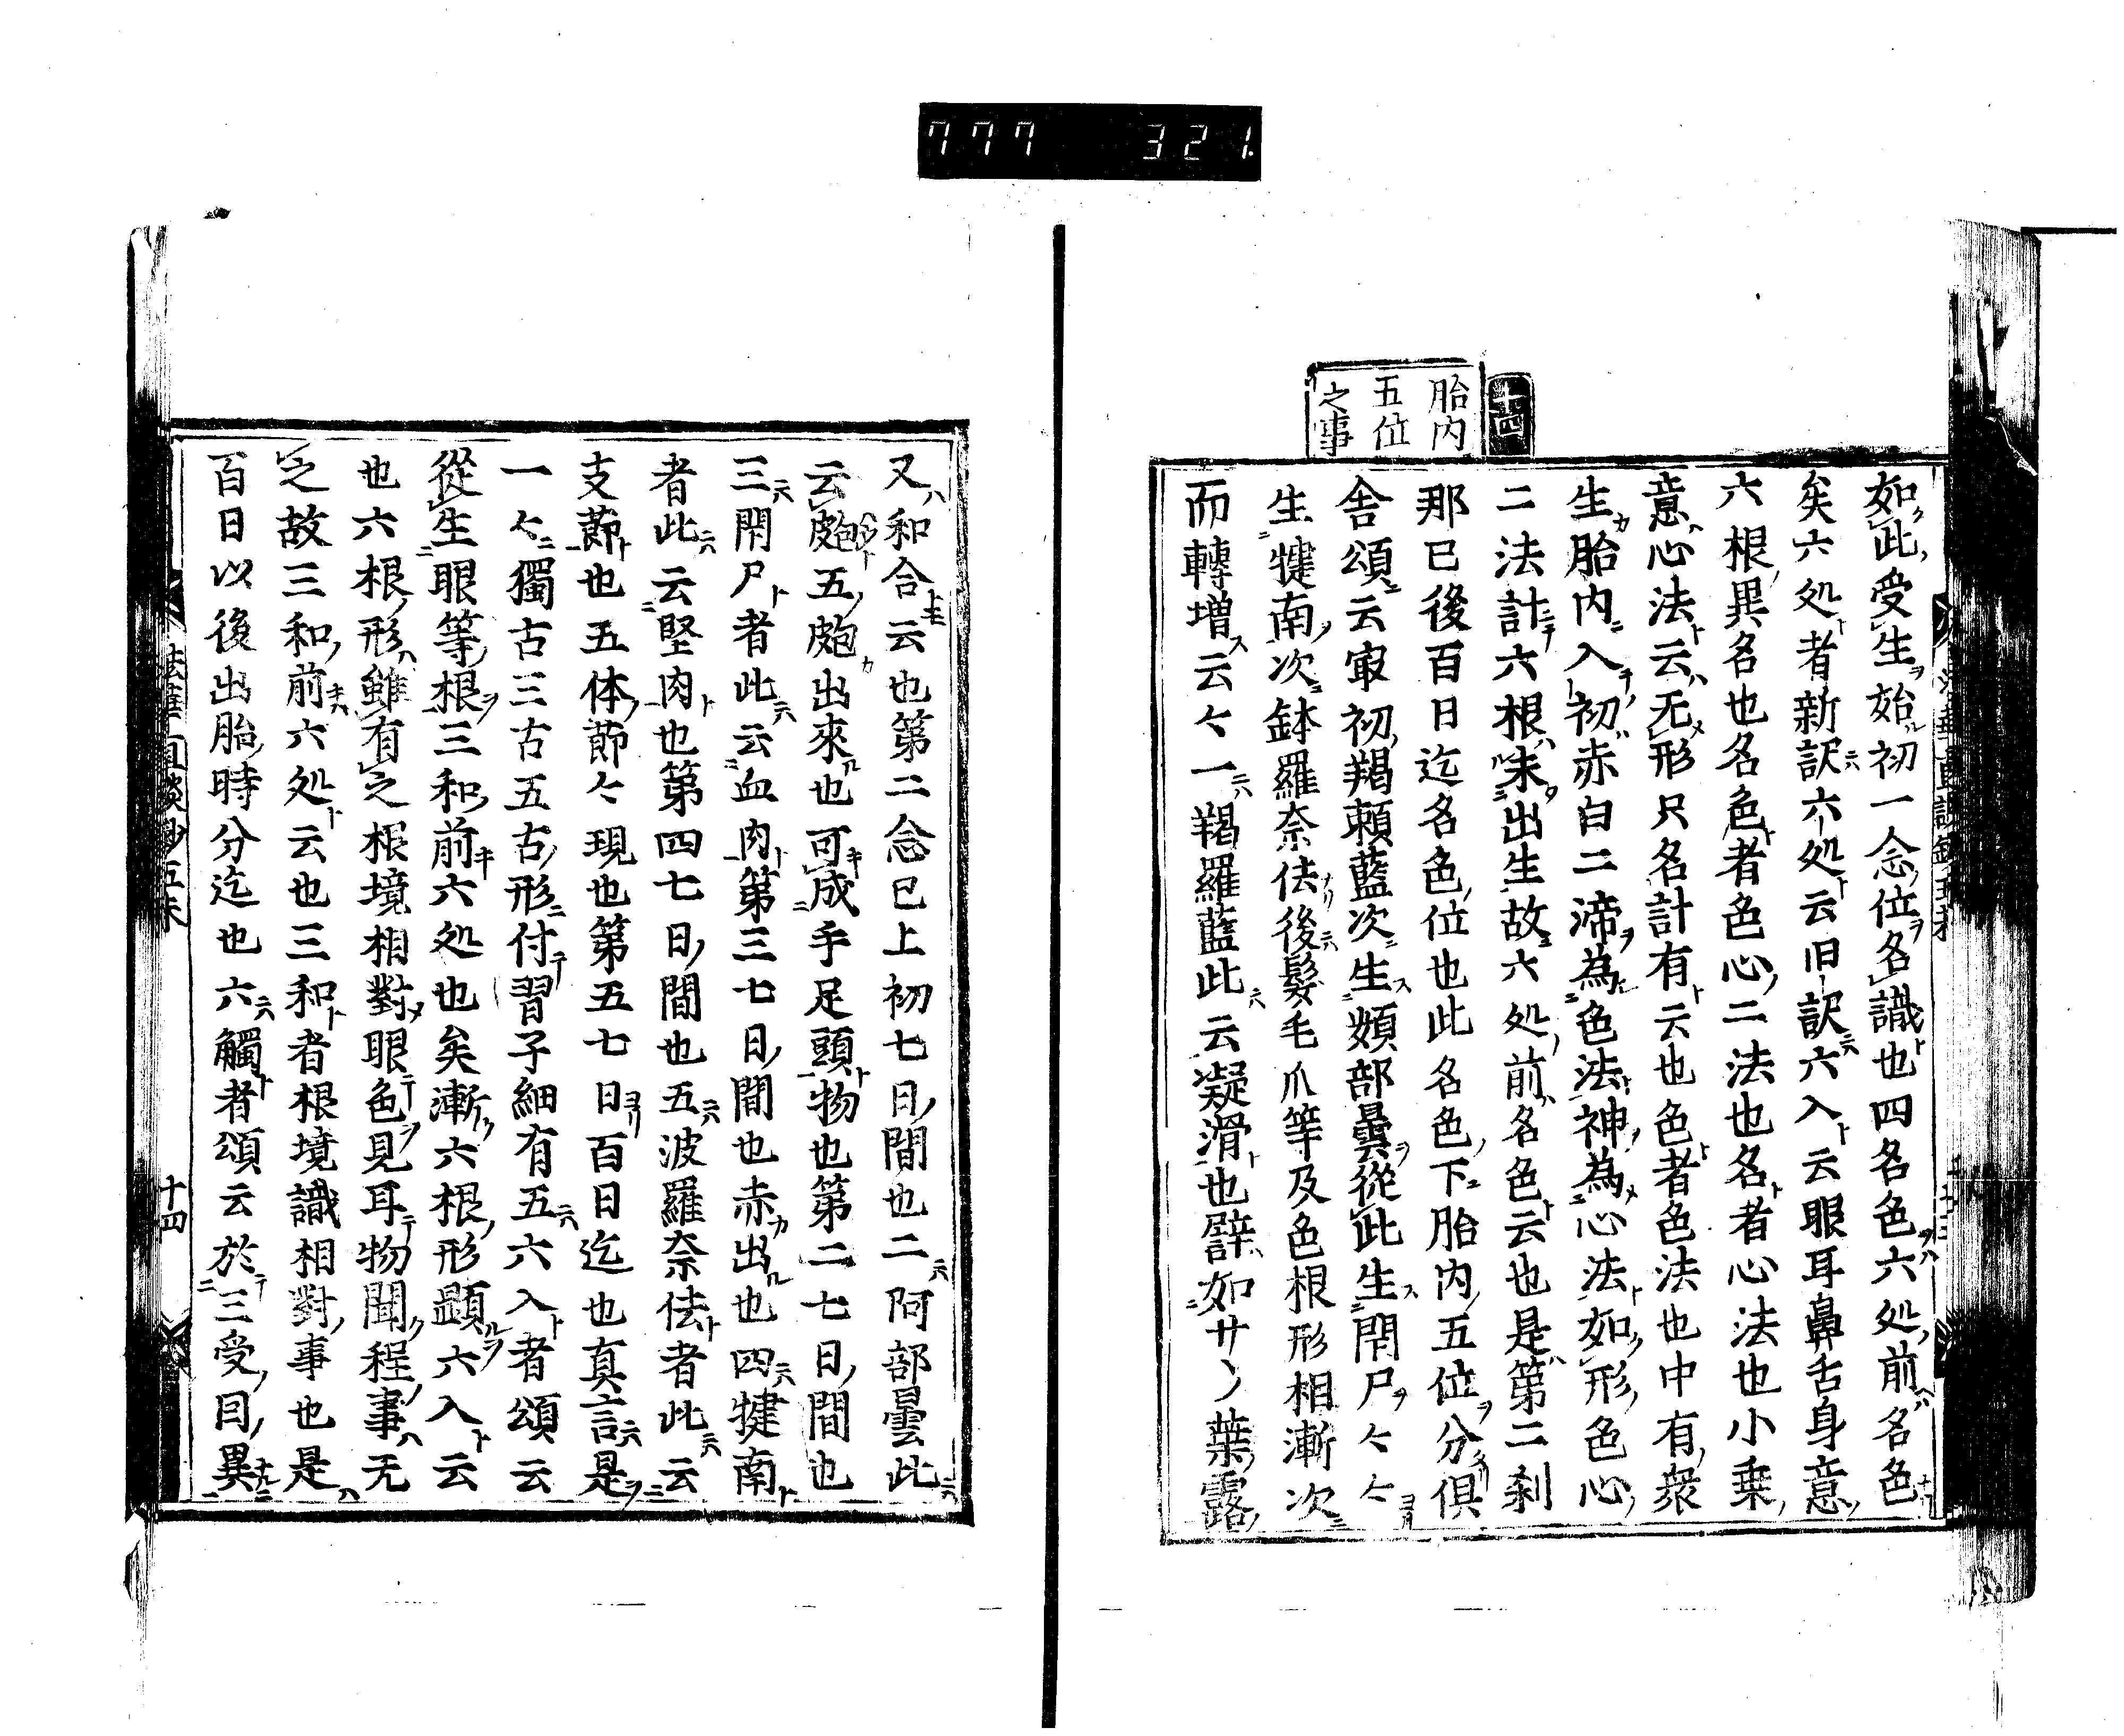 777 321.
十四
胎内
五位
之事
如此受生始初一念位名識也四名色六処前名色
矣六処者新訳六処云旧訳六入云眼耳鼻舌身意
六根異名也名色者色心二法也名者心法也小乗
意心法云无形只名計有云也色者色法也中有衆
生胎内入初赤白二渧為色法神為心法如形色心
二法計六根未出生故六処前名色云也是第二刹
那已後百日迄名色位也此名色下胎内五位分俱
舎頌云㝡初羯頼藍次生頞部曇從此生閇尸〻〻
生犍南次鉢羅奈佉後髮毛爪等及色根形相漸次
而轉増云〻一羯羅藍此云凝滑也譬如サヽ葉露
又和合云也第二念已上初七日間也二阿部曇此
云皰五皰出來也可成手足頭物也第二七日間也
三閇尸者此云血肉第三七日間也赤出也四犍南
者此云堅肉也第四七日間也五波羅奈佉者此云
支莭也五体莭〻現也第五七日百日迄也真言是
一〻獨古三古五古形付習子細有五六入者頌云
從生眼等根三和前六処也矣漸六根形顕六入云
也六根形雖有之根境相對眼色見耳物聞程事无
之故三和前六処云也三和者根境識相對事也是
百日以後出胎時分迄也六觸者頌云於三受因異
法華直談鈔五末
十四